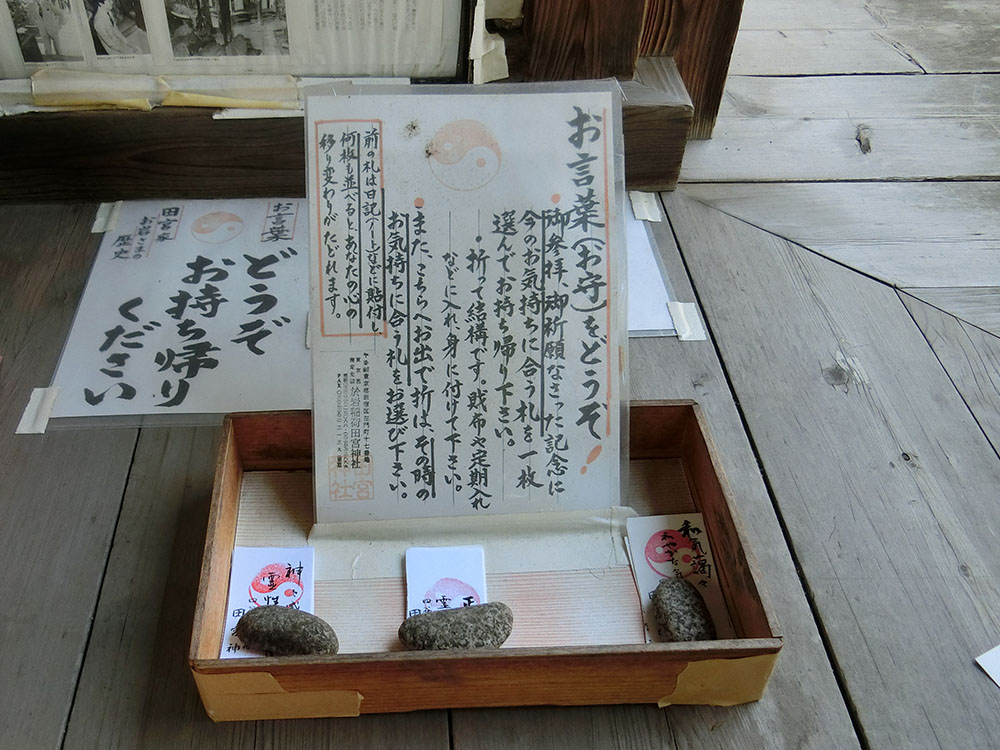 お言葉(お守)をどうぞ!
御参拝、御祈願なさった記念に
今のお気持ちに合う札を一枚
選んでお持ち帰り下さい。
・折って結構です。財布や定期入れ
などに入れ、身に付けて下さい。
また、こちらへお出で折は、その時の
お気持ちに合う札をお選び下さい。
前の札は日記(ノート)などに貼付し、
何枚も並べると、あなたの心の
移り変わりがたどれます。
東京都新宿区左門町十七番地
於岩稲荷田宮神社
お言葉
どうぞ
お持ち帰り
ください
田宮家
お岩さまの
歴史
和気藹々
神
霊
田
神
正
霊